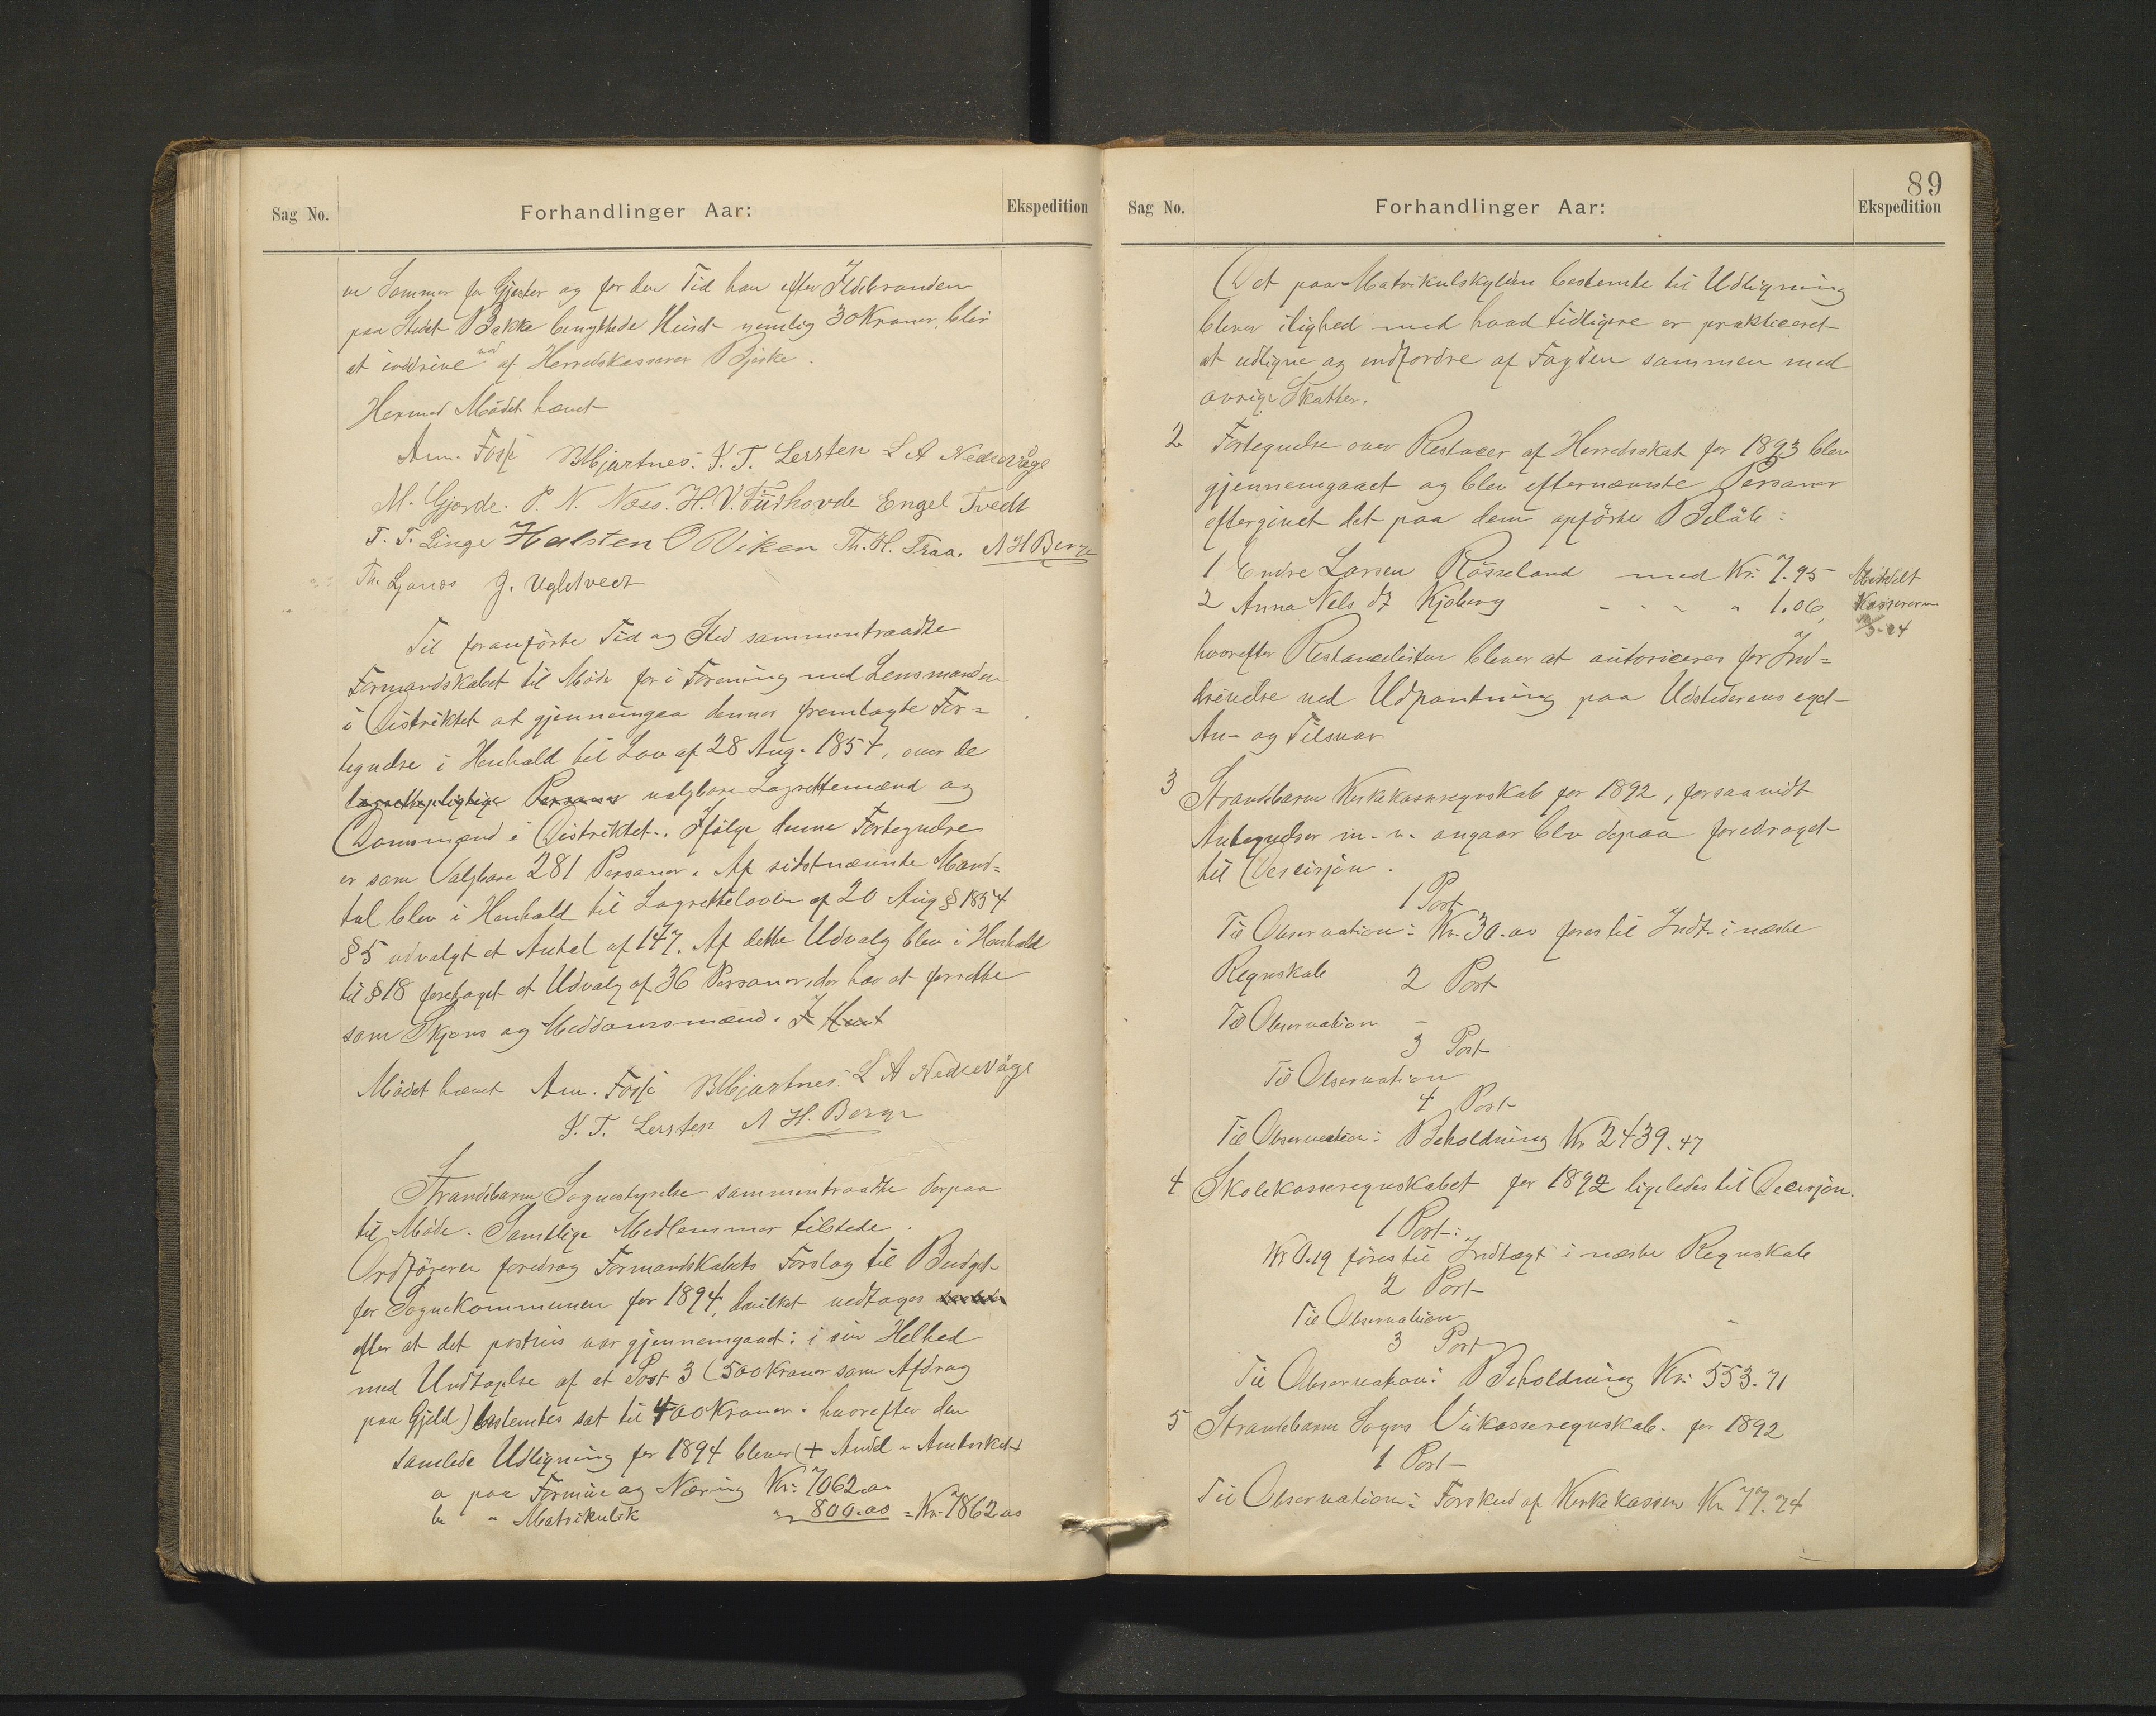 Sag No.
Forhandlinger Aar:
Ekspedition
en Sommer for Gjester og for den Tid han efter Ildebranden
paa Stedet Bakke benyttede Huset nemlig 30 Kroner, blir
at inddrive ved af Herredskasserer Bjerke.
Hermed Mödet hævet
Am. Fosse B Hjartnes. S. T. Lersten L A Nedrevåge
M. Gjerde. P. N. Næss. H. V. Fürhovde Engel Tvedt
T. T. Linge Halsten O Viken Th. H. Traa. A H Berge
Th. Ljones J. Ugletvedt
Til foranförte Tid og Sted sammentraadte
Formandskabet til Möde for i Forening med Lensmanden
i Distriktet at gjennemgaa dennes fremlagte For=
tegnelse i Henhold til Lov af 28 Aug. 1854, over de
lagrettepligtige Personer valgbare Lagrettemænd og
Domsmænd i Distriktet. Ifölge denne Fortegnelse
er som Valgbare 281 Personer. Af sidstnævnte Mand=
tal blev i Henhold til Lagretteloven af 20 Aug § 1854
§ 5 udvalgt et Antal af 147. Af dette Udvalg blev i Henhold
til § 18 foretaget et Udvalg af 36 Personer, der har at forrette
som Skjöns og Meddomsmænd. I Hent
Mödet hævet Am. Fosse B Hjartnes. L A Nedrevåge
S. T. Lersten A H. Berge
Strandebarm Sognestyrelse sammentraadte derpaa
til Möde. Samtlige Medlemmer tilstede.
Ordföreren foredrog Formandskabets Forslag til Budget
for Sognekommunen for 1894, hvilket vedtoges
efter at det postvis var gjennemgaaet: i sin Helhed
med Undtagelse af at Post 3 (500 Kroner som Afdrag
paa Gjeld) bestemtes sat til 400 Kroner. hvorefter den
samlede Udligning for 1894 bliver (+ Andel i Amtsskat)
a paa Formue og Næring Kr: 7062.00
b " Matrikulsk " 800.00 = Kr. 7862.00
89
Sag No.
Forhandlinger Aar:
Ekspedition
Det paa Matrikulskylden bestemte til Udligning
bliver i lighed med hvad tidligere er prakticeret
at udligne og indfordre af Fogden sammen med
övrige Skatter.
2 Fortegnelse over Restancer af Herredsskat for 1893 blev
gjennemgaaet og blev efternævnte Personer
eftergivet det paa dem opförte Belöb:
1 Endre Larsen Rösseland med Kr. 7.95
2 Anna Nels dt Kjöberg " 1.06
Meddelt
Kassereren
/3-94
hvorefter Restancelisten bliver at autoriceres for Ind=
drivelse ved Udpantning paa Udstederens eget
An- og Tilsvar
3 Strandebarm Kirkekasseregnskab for 1892, forsaavidt
Antegnelser m. v. angaar blev derpaa foredraget
til Decisjon.
1 Post
Til Observation: Kr. 30.00 föres til Indt. i næste
Regnskab
2 Post
Til Observation –
3 Post
Til Observation
4 Post
Til Observation: Beholdning Kr 2439.47
4 Skolekasseregnskabet for 1892 ligeledes til Decisjon.
1 Post:
Kr 0.19 föres til Indtægt i næste Regnskab
2 Post
Til Observation
3 Post
Til Observation: Beholdning Kr: 553.71
5 Strandebarm Sogns Veikasseregnskab. for 1892
1 Post
Til Observation: Forskud af Kirkekassen Kr. 77.74